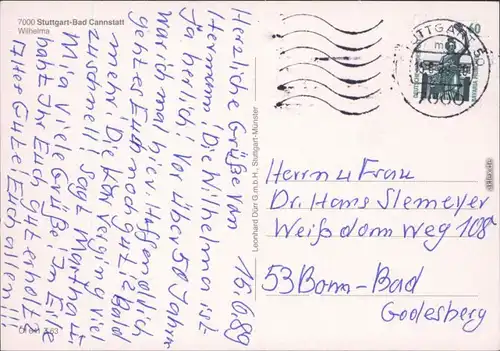 7000 Stuttgart-Bad Cannstatt
Wilhelma
16.6.89
Herzliche Grüße von
Hermann! Die Wilhelma ist
ja herlich! Vor über 50 Jahr
war ich mal hier! Hoffendlich
geht es Euch noch gut! in Bad
mehr. Die Kur verging viel
zu schnell! sagt Martha u.
Mia Viele Grüße! In Eile
habt Ihr Euch gut erholt?
Alles Gute! Euch allen!!!
Leonhard Dürr G.m.b.H., Stuttgart-Münster
STUTTGART 50
7000
60
Herrn u Frau
Dr. Hans Slemeyer
Weißdorn Weg 108
53 Bonn-Bad
Godesberg